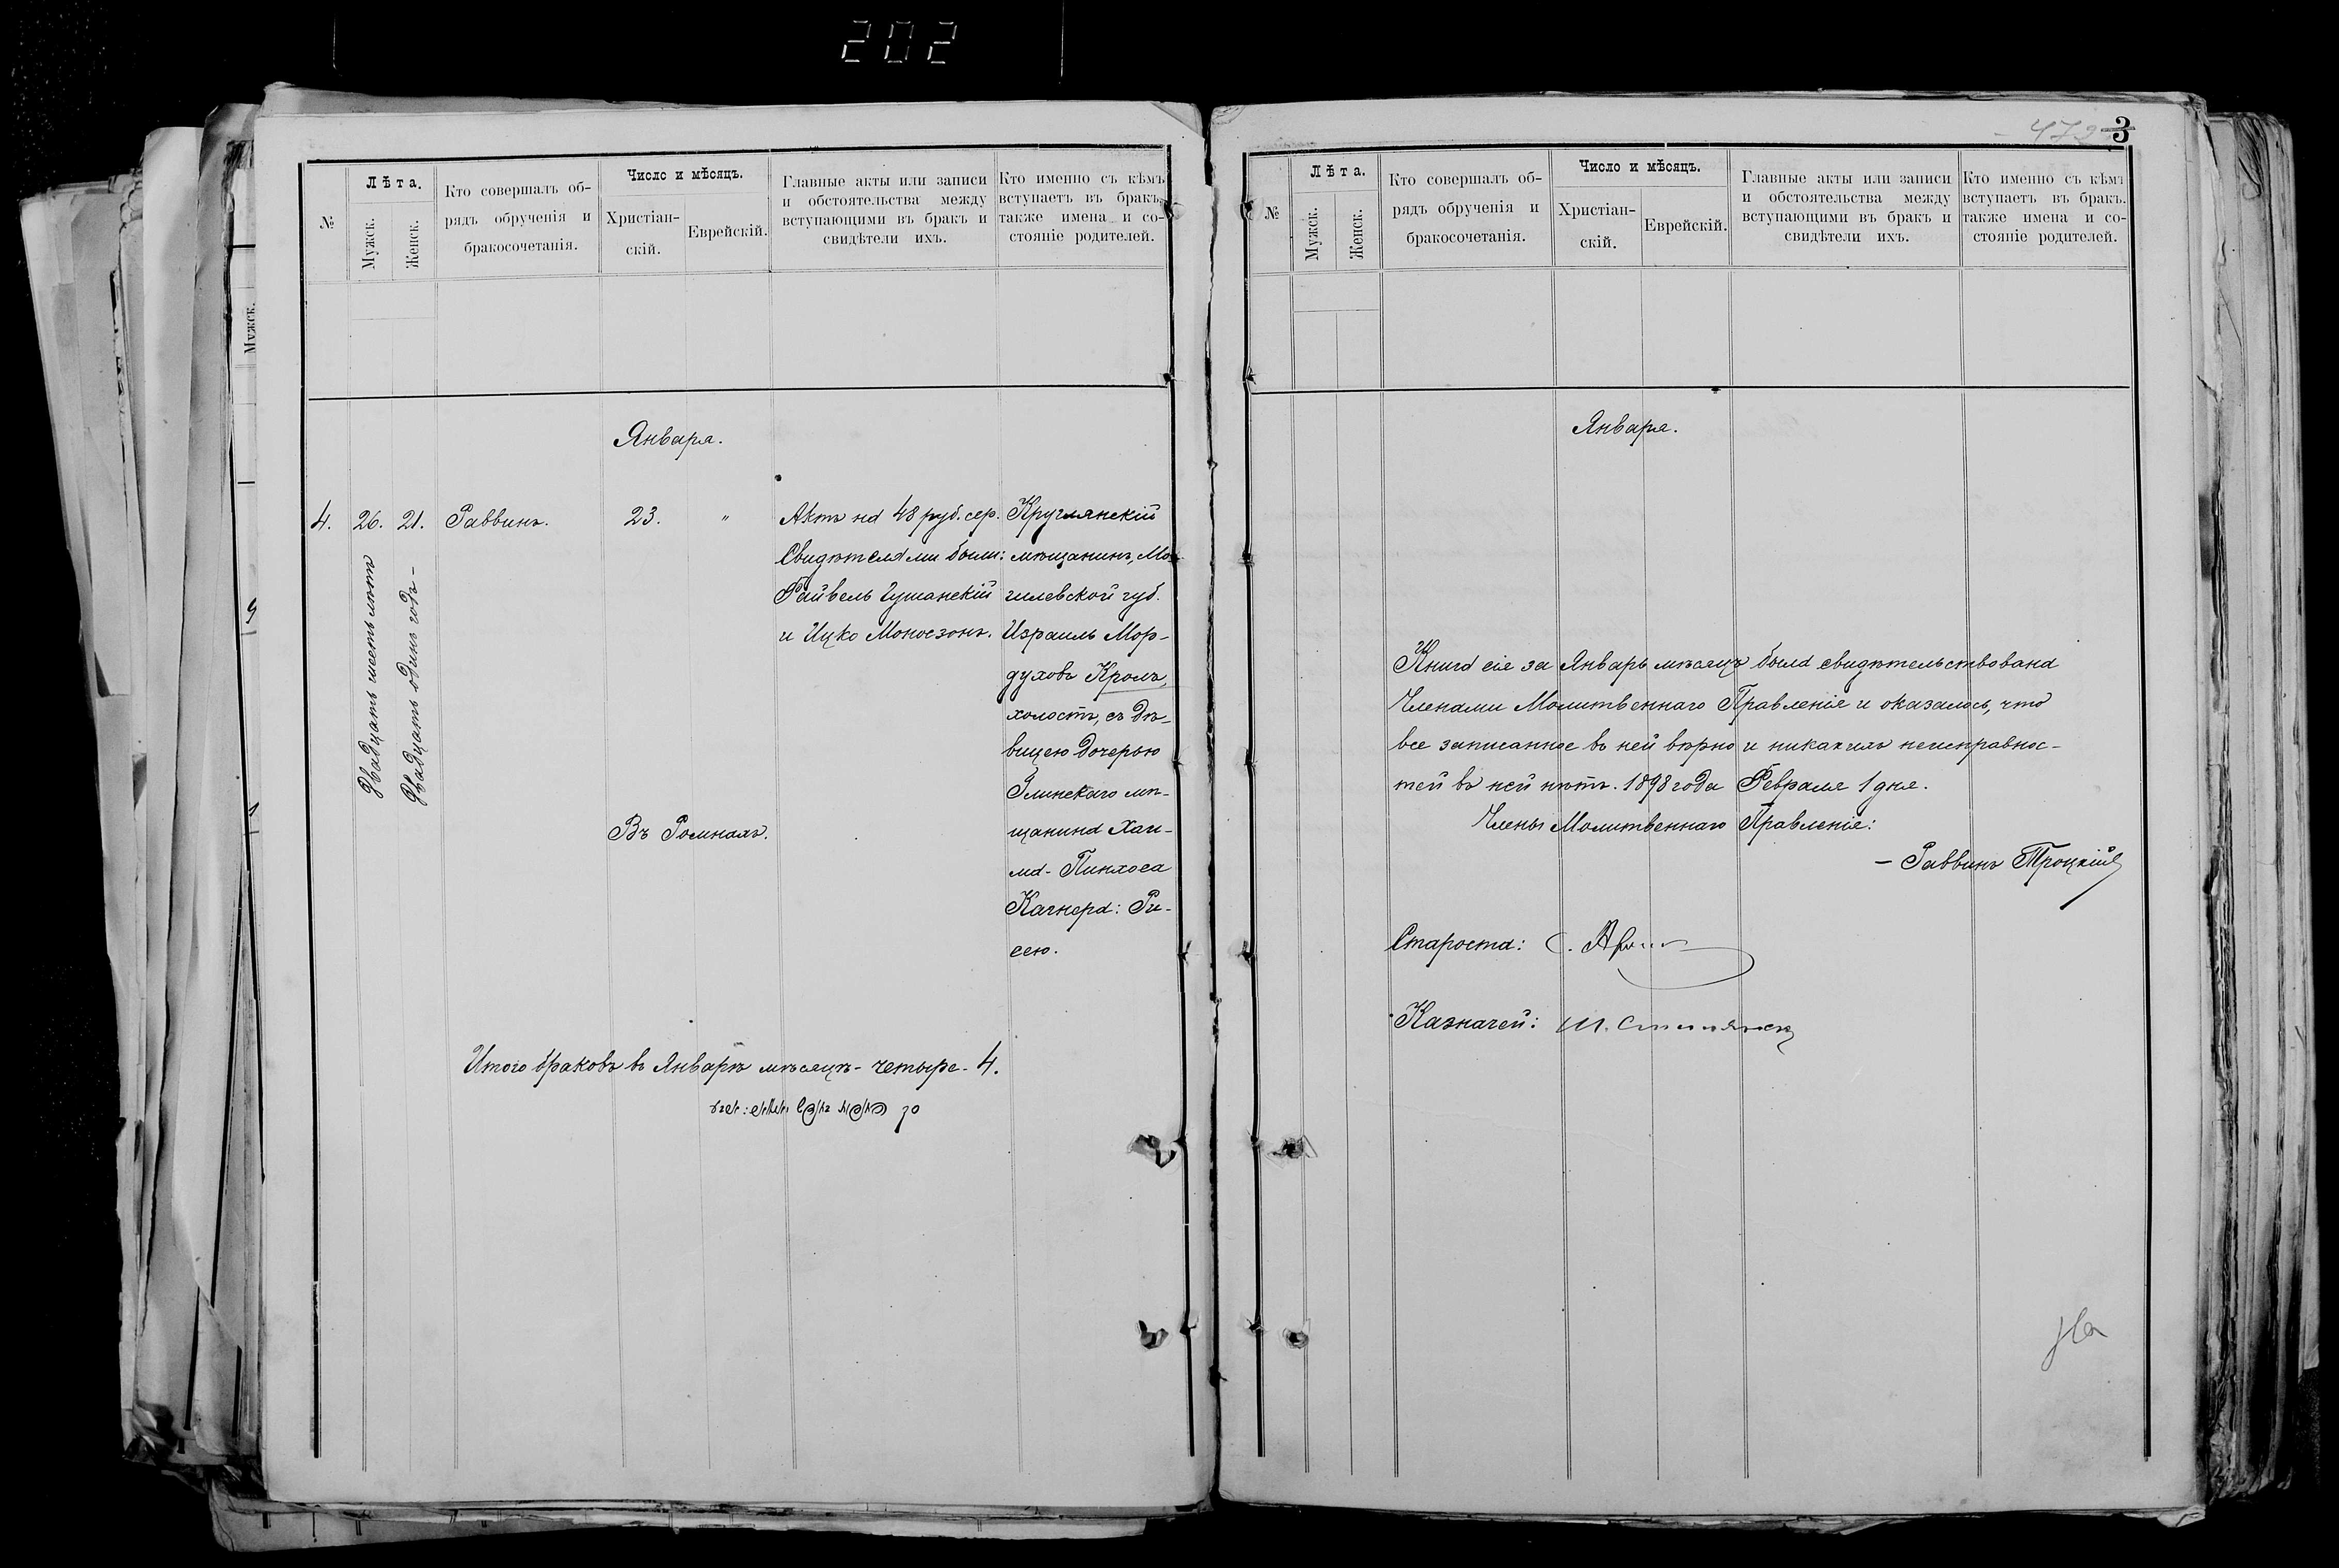 202
№
Лѣта.
Мужск.
Женск.
Кто совершалъ об-
рядъ обрученія и
бракосочетанія.
Число и мѣсяцъ.
Христіан-
скій.
Еврейскій.
Главные акты или записи
и обстоятельства между
вступающими въ бракъ и
свидѣтели ихъ.
Кто именно съ кѣмъ
вступаетъ въ бракъ,
также имена и со-
стояніе родителей.
Января.
4.
26.
Двадцать шесть лѣтъ
21.
Двадцать одинъ годъ –
Раввинъ.
23.
"
Въ Ромнахъ.
Актъ на 48 руб. сер.
Свидѣтелями были:
Файвель Гуманскій
и Ицко Моносзонъ.
Круглянскій
мѣщанинъ, Мо-
гилевской губ.
Израиль Мор-
духовъ Кроль,
холостъ, съ дѣ-
вицею дочерью
Глинскаго мѣ-
щанина Хаи-
ма-Пинхоса
Качнера: Ри-
сею.
Итого браковъ въ Январѣ мѣсяцѣ – четыре – 4.
472
3
№
Лѣта.
Мужск.
Женск.
Кто совершалъ об-
рядъ обрученія и
бракосочетанія.
Число и мѣсяцъ.
Христіан-
скій.
Еврейскій.
Главные акты или записи
и обстоятельства между
вступающими въ бракъ и
свидѣтели ихъ.
Кто именно съ кѣмъ
вступаетъ въ бракъ.
также имена и со-
стояніе родителей.
Января.
Книга сія за Январь мѣсяцъ была свидѣтельствована
Членами Молитвеннаго Правленія и оказалось, что
все записанное въ ней вѣрно и никакихъ неисправнос-
тей въ ней нѣтъ. 1898 года Февраля 1 дня.
Члены Молитвеннаго Правленія:
– Раввинъ Троцкій
Староста: С.
Казначей: Ш.
Мужск.